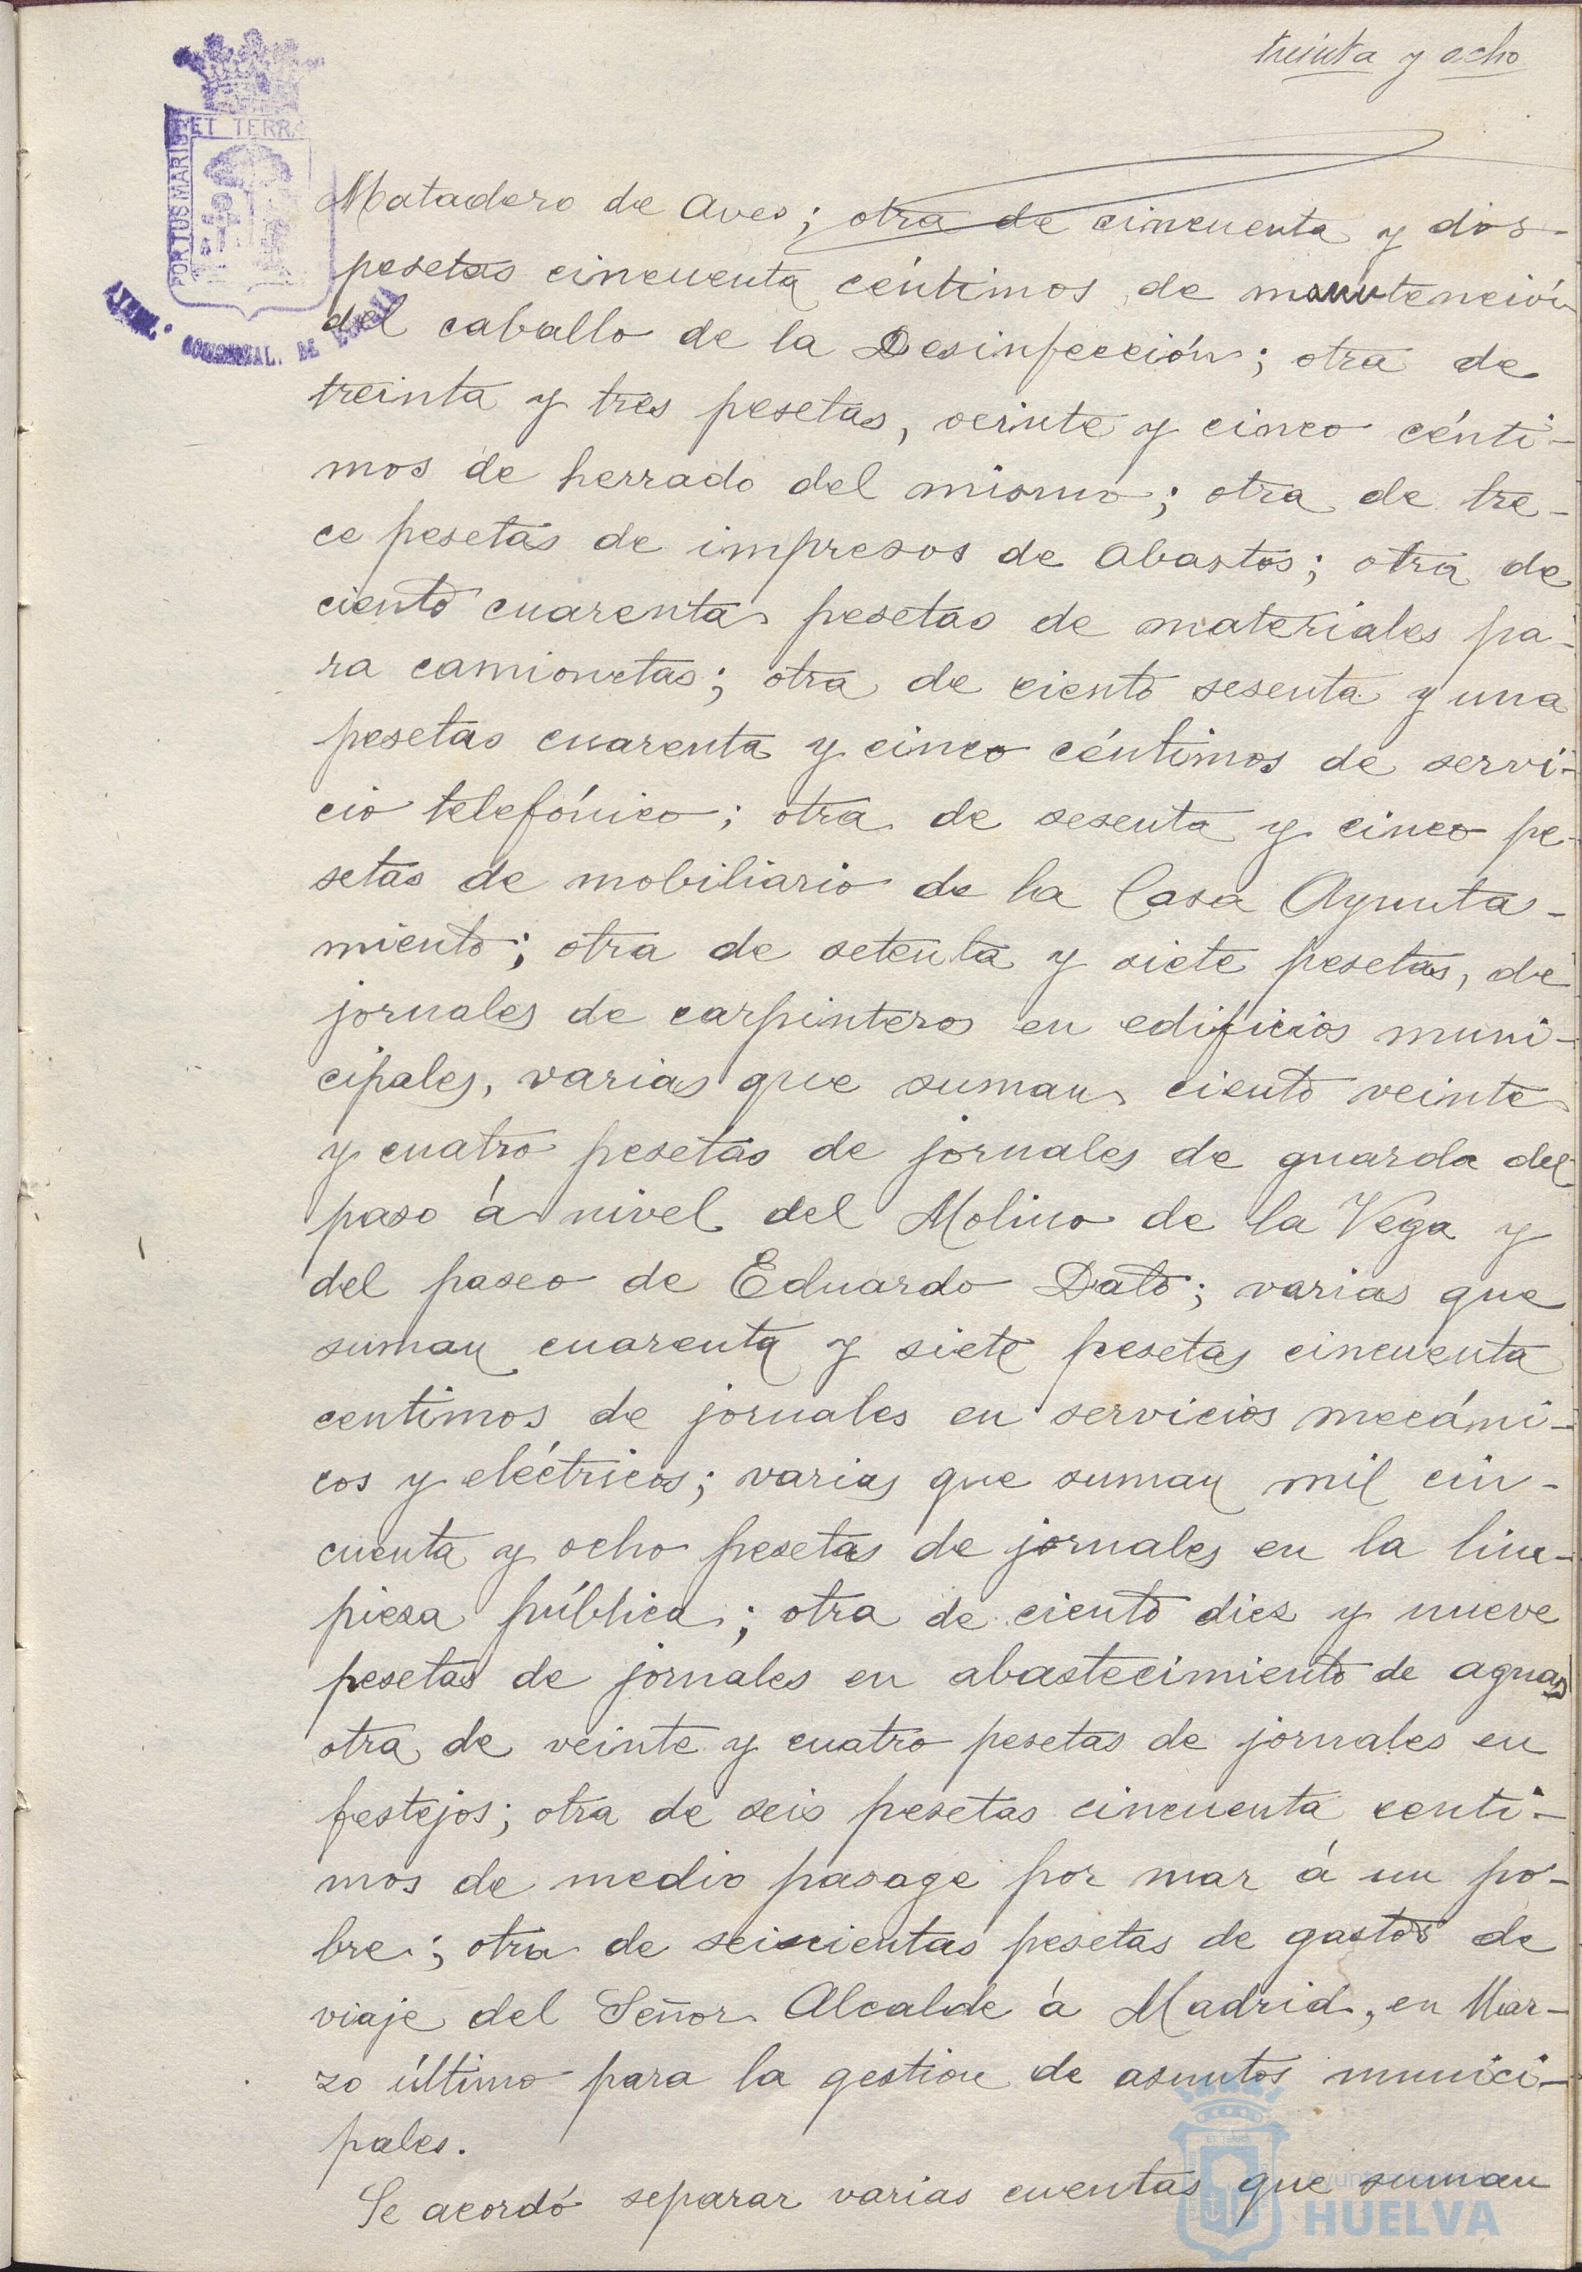 treinta y ocho
PORTUS MARIS ET TERRÆ
Matadero de Aves; otra de cincuenta y dos
pesetas cincuenta céntimos de manutención
del caballo de la Desinfección; otra de
treinta y tres pesetas, veinte y cinco cénti-
mos de herrado del mismo; otra de tre-
ce pesetas de impresos de Abastos; otra de
ciento cuarenta pesetas de materiales pa-
ra camionetas; otra de ciento sesenta y una
pesetas cuarenta y cinco céntimos de servi-
cio telefónico; otra de sesenta y cinco pe-
setas de mobiliario de la Casa Ayunta-
miento; otra de setenta y siete pesetas, de
jornales de carpinteros en edificios muni-
cipales, varias que suman ciento veinte
y cuatro pesetas de jornales de guarda del
paso á nivel del Molino de la Vega y
del paseo de Eduardo Dato; varias que
suman cuarenta y siete pesetas cincuenta
centimos de jornales en servicios mecáni-
cos y eléctricos; varias que suman mil cin-
cuenta y ocho pesetas de jornales en la lim-
pieza pública; otra de ciento diez y nueve
pesetas de jornales en abastecimiento de aguas
otra de veinte y cuatro pesetas de jornales en
festejos; otra de seis pesetas cincuenta centi-
mos de medio pasage por mar á un po-
bre; otra de seiscientas pesetas de gastos de
viaje del Señor Alcalde á Madrid, en Mar-
zo último para la gestion de asuntos munici-
pales.
Se acordó separar varias cuentas que suman
HUELVA